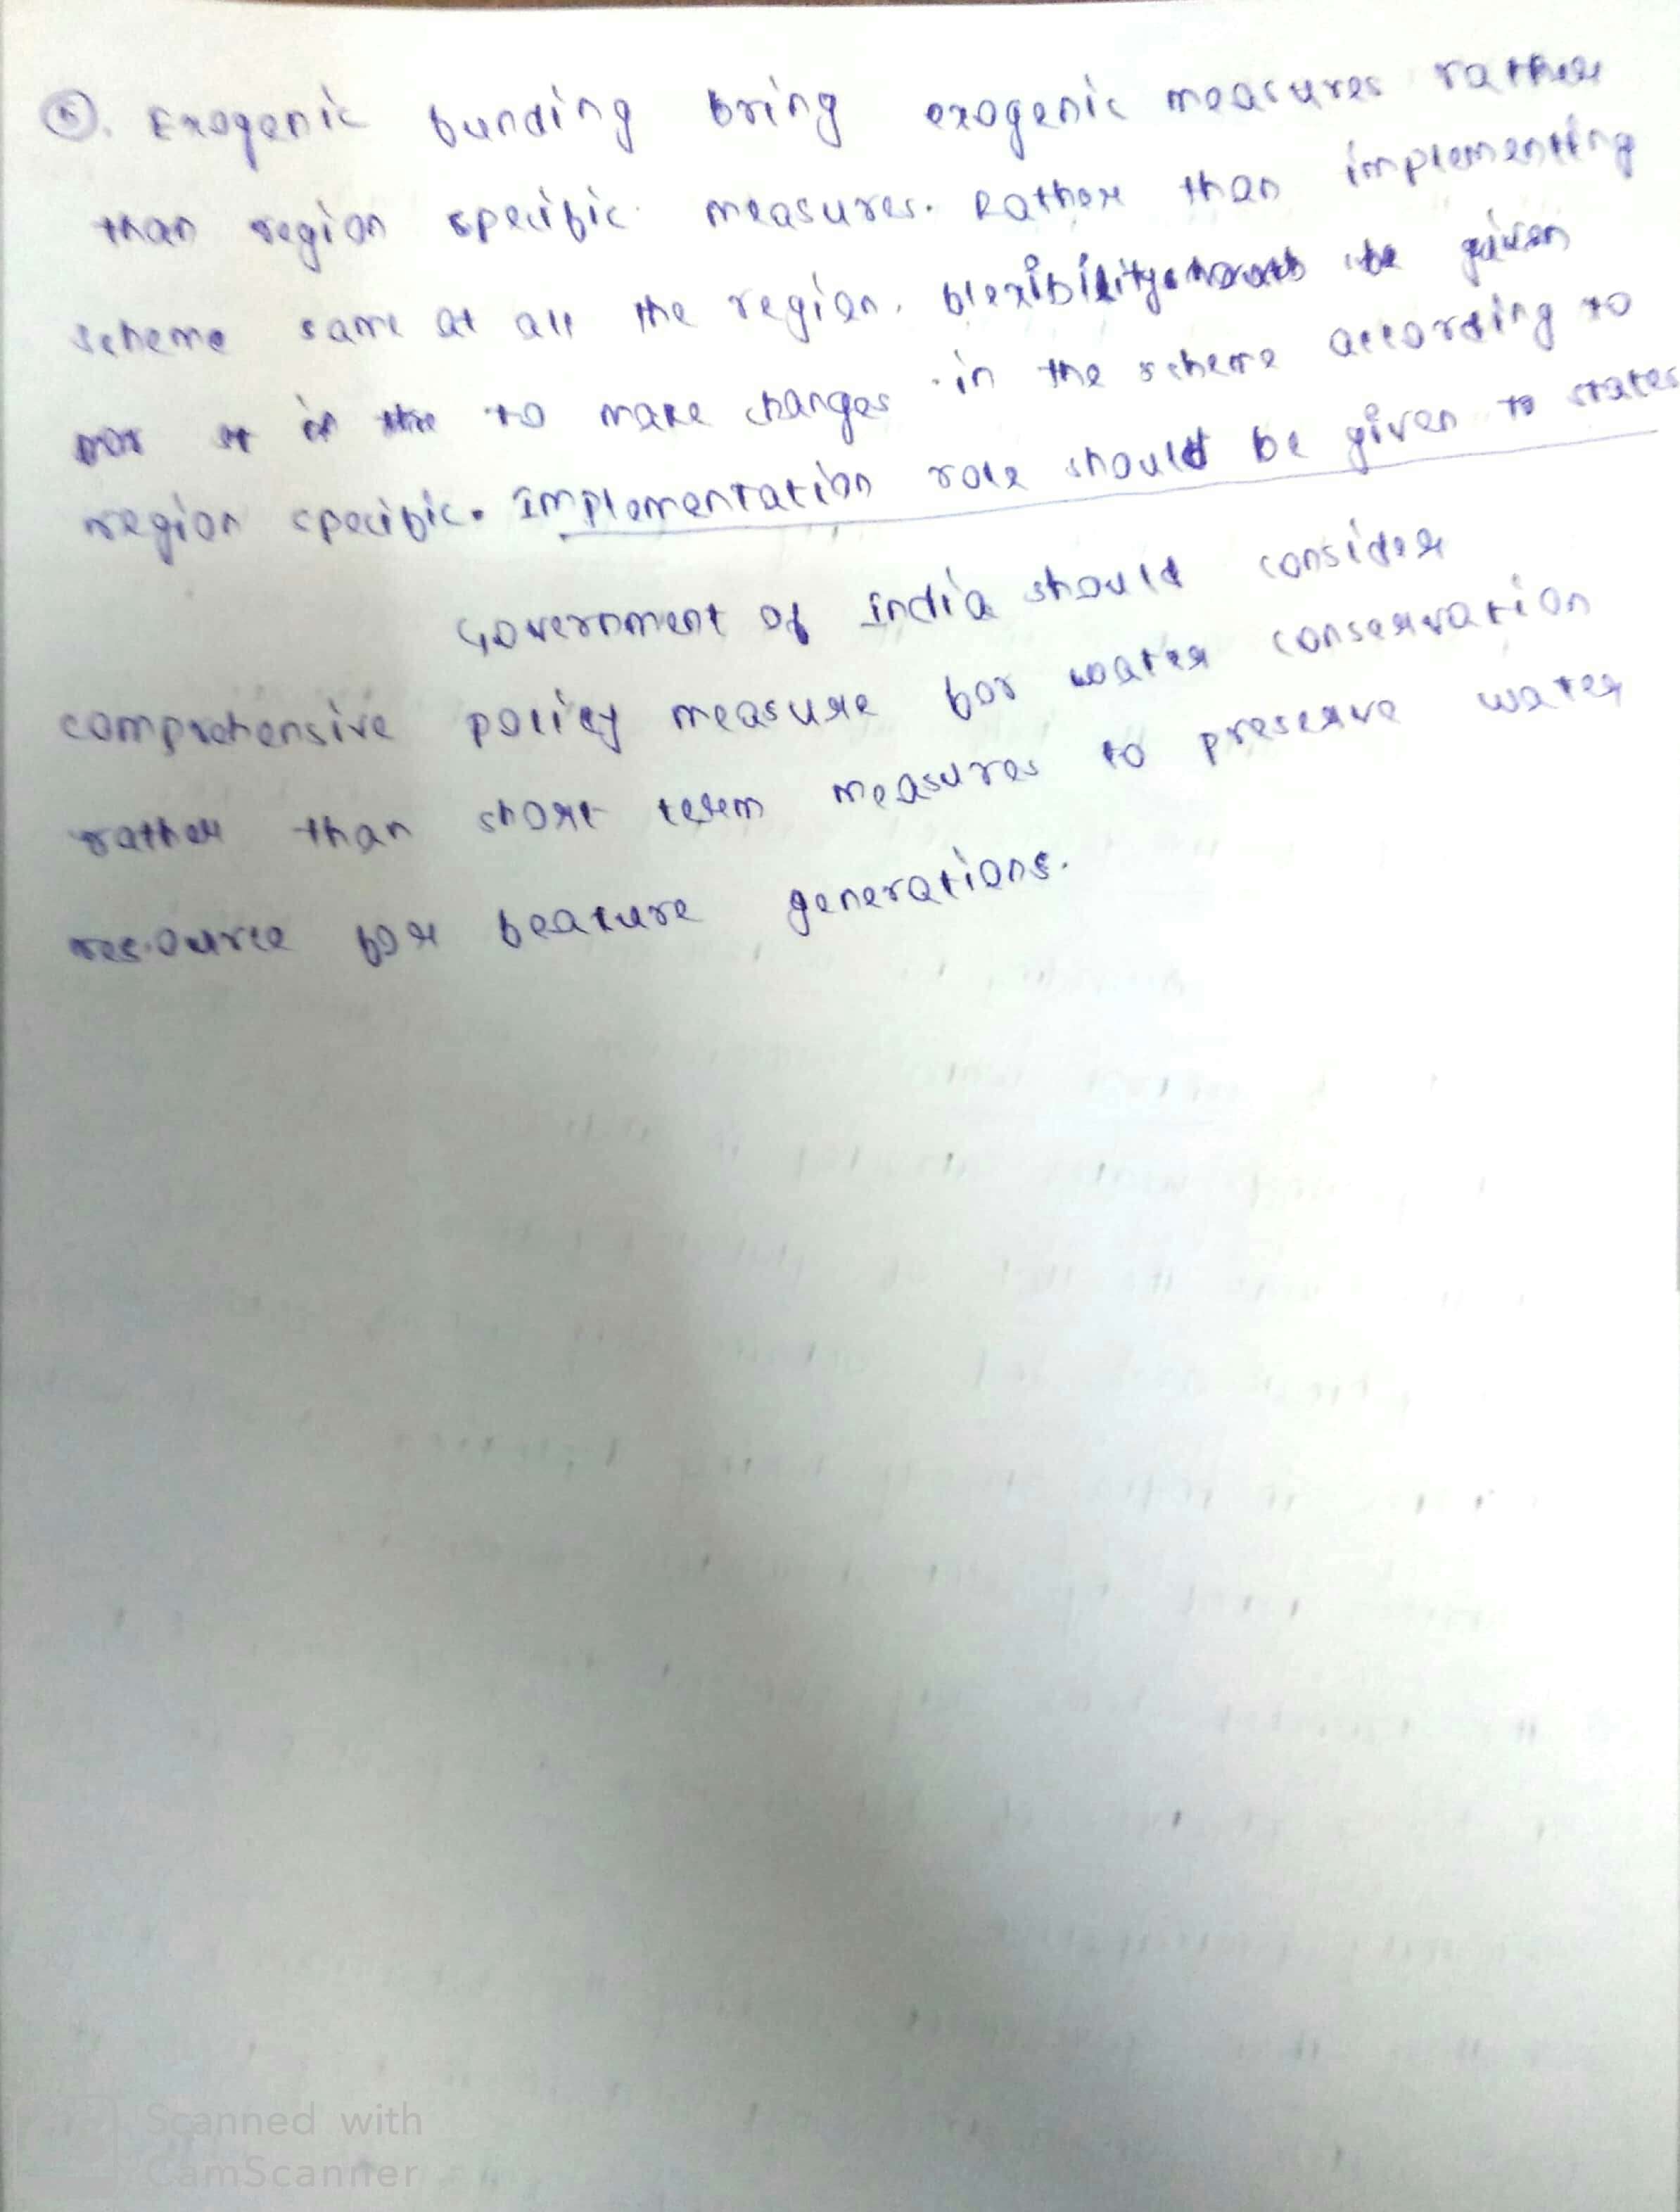 ⑤. Exogenic funding bring exogenic measures rather
than region specific measures. Rather than implementing
scheme same at all the region. flexibility be given
to make changes in the scheme according to
region specific. Implementation role should be given to states
Government of India should consider
comprehensive policy measure for water conservation
rather than short term measures to preserve water
resource for feature generations.
Scanned with
CamScanner